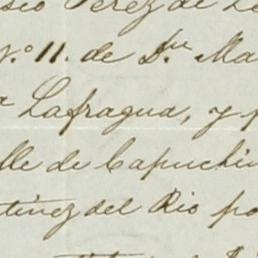 sio Perez de L
N.º 11. de D.ⁿ Ma
a Lafragua, y p
lle de Capuchin
tinez del Rio po